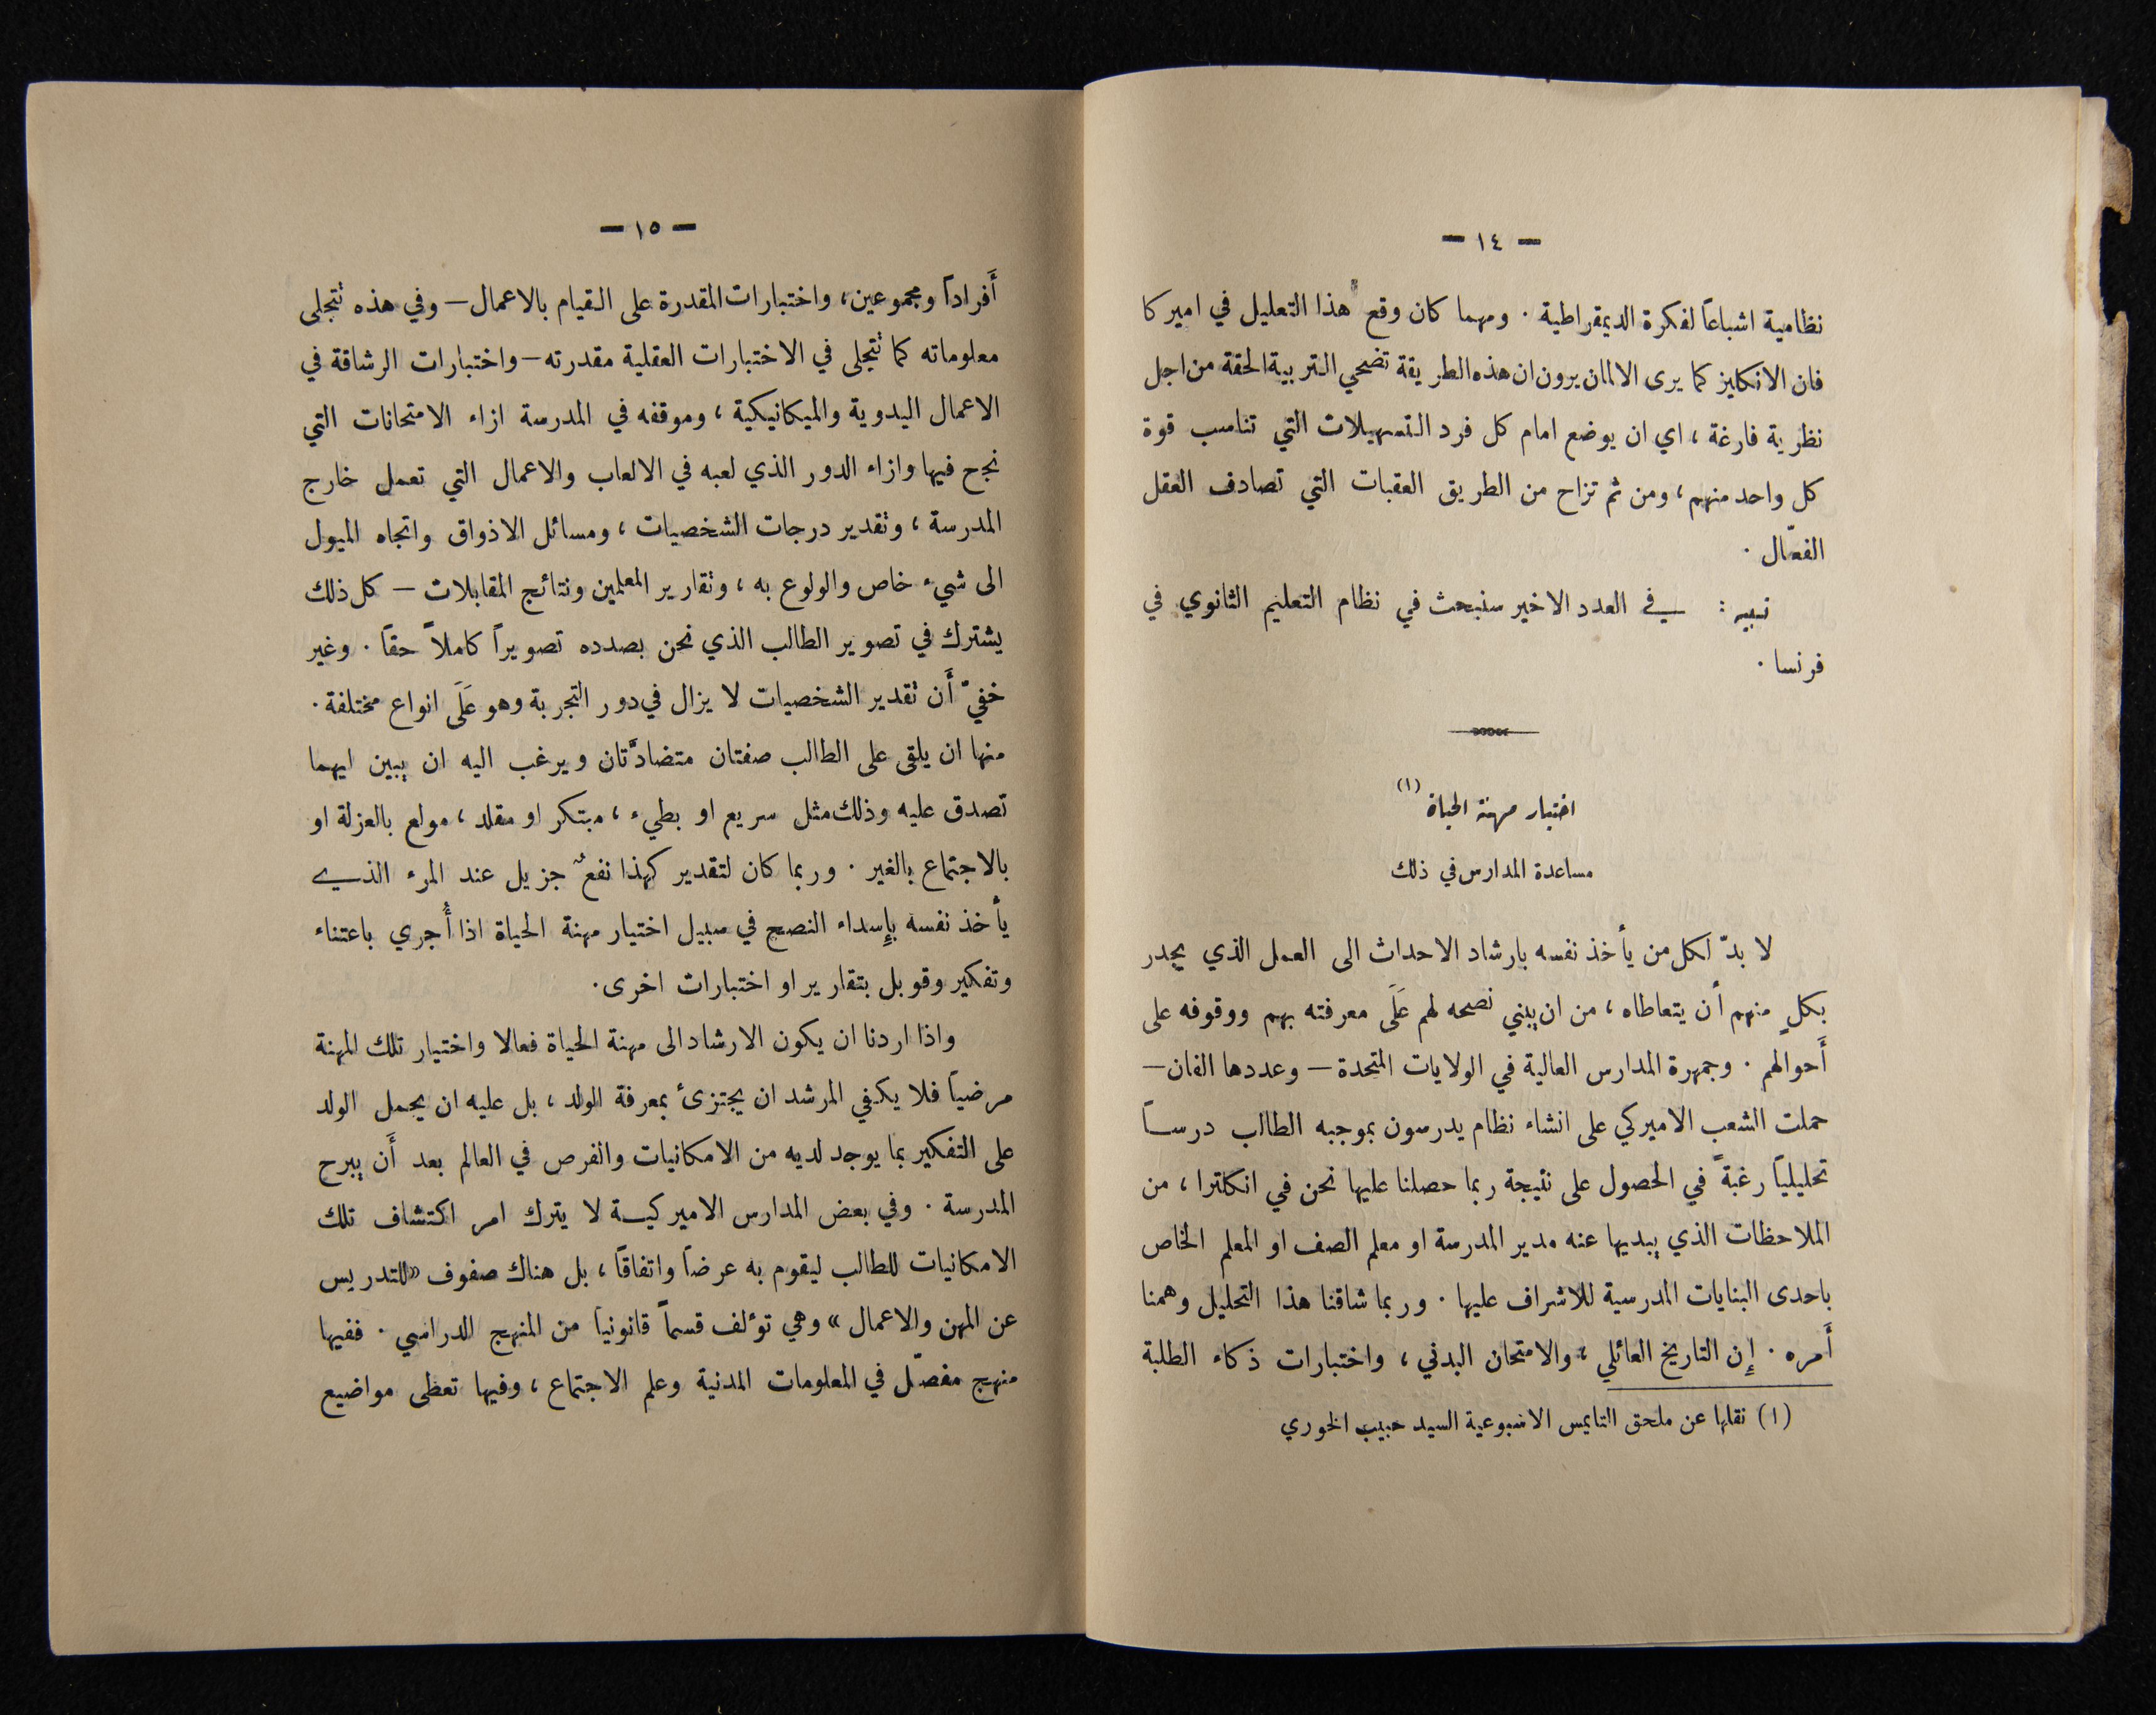 — ١٤ —
نظامية اشباعاً لفكرة الديمقراطية . ومهما كان وقع هذا التعليل في اميركا
فان الانكليز كما يرى الالمان يرون ان هذه الطريقة تضحي التربية الحقة من اجل
نظرية فارغة ، اي ان يوضع امام كل فرد التسهيلات التي تناسب قوة
كل واحد منهم ، ومن ثم تزاح من الطريق العقبات التي تصادف العقل
الفعّال .
تنبيه : في العدد الاخير سنبحث في نظام التعليم الثانوي في
فرنسا .
اختيار مهنة الحياة (١)
مساعدة المدارس في ذلك
لا بدّ لكل من يأخذ نفسه بارشاد الاحداث الى العمل الذي يجدر
بكلٍ منهم أن يتعاطاه ، من ان يبني نصحه لهم عَلَى معرفته بهم ووقوفه على
أَحوالهم . وجمهرة المدارس العالية في الولايات المتحدة — وعددها الفان —
حملت الشعب الاميركي على انشاء نظام يدرسون بموجبه الطالب درساً
تحليلياً رغبةً في الحصول على نتيجة ربما حصلنا عليها نحن في انكلترا ، من
الملاحظات الذي يبديها عنه مدير المدرسة او معلم الصف او المعلم الخاص
باحدى البنايات المدرسية للاشراف عليها . وربما شاقنا هذا التحليل وهمنا
أَمره . إِن التاريخ العائلي ، والامتحان البدني ، واختبارات ذكاء الطلبة
(١) نقلها عن ملحق التايمس الاسبوعية السيد حبيب الخوري
— ١٥ —
أَفراداً ومجموعين ، واختبارات المقدرة على القيام بالاعمال — وفي هذه تتجلى
معلوماته كما تتجلى في الاختبارات العقلية مقدرته — واختبارات الرشاقة في
الاعمال اليدوية والميكانيكية ، وموقفه في المدرسة ازاء الامتحانات التي
نجح فيها وازاء الدور الذي لعبه في الالعاب والاعمال التي تعمل خارج
المدرسة ، وتقدير درجات الشخصيات ، ومسائل الاذواق واتجاه الميول
الى شيء خاص والولوع به ، وتقارير المعلمين ونتائج المقابلات — كل ذلك
يشترك في تصوير الطالب الذي نحن بصدده تصويراً كاملاً حقاً . وغير
خفيّ أَن تقدير الشخصيات لا يزال في دور التجربة وهو عَلَى انواع مختلفة .
منها ان يلقى على الطالب صفتان متضادَّتان ويرغب اليه ان يبين ايهما
تصدق عليه وذلك مثل سريع او بطيء ، مبتكر او مقلد ، مولع بالعزلة او
بالاجتماع بالغير . وربما كان لتقدير كهذا نفعٌ جزيل عند المرء الذي
يأخذ نفسه بإسداء النصح في سبيل اختيار مهنة الحياة اذا أُجري باعتناء
وتفكير وقوبل بتقارير او اختبارات اخرى .
واذا اردنا ان يكون الارشاد الى مهنة الحياة فعالا واختيار تلك المهنة
مرضياً فلا يكفي المرشد ان يجتزئ بمعرفة الولد ، بل عليه ان يحمل الولد
على التفكير بما يوجد لديه من الامكانيات والفرص في العالم بعد أَن يبرح
المدرسة . وفي بعض المدارس الاميركيـة لا يترك امر اكتشاف تلك
الامكانيات للطالب ليقوم به عرضاً واتفاقاً ، بل هناك صفوف «للتدريس
عن المهن والاعمال » وهي تؤلف قسماً قانونياً من المنهج الدراسي . ففيها
منهج مفصّل في المعلومات المدنية وعلم الاجتماع ، وفيها تعطى مواضيع